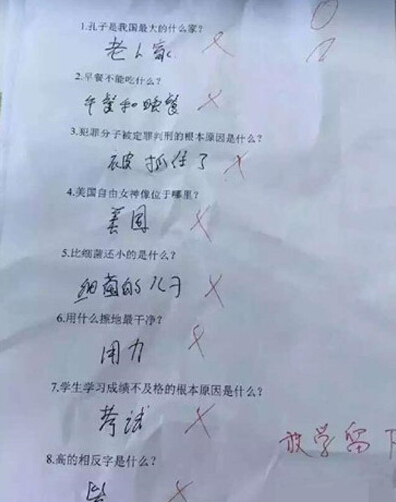 1.孔子是我国最大的什么家?
老人家
2.早餐不能吃什么?
午餐和晚餐
3.犯罪分子被定罪判刑的根本原因是什么?
被抓住了
4.美国自由女神像位于哪里?
美国
5.比细菌还小的是什么?
细菌的儿子
6.用什么擦地最干净?
用力
7.学生学习成绩不及格的根本原因是什么?
考试
放学留下
8.高的相反字是什么?